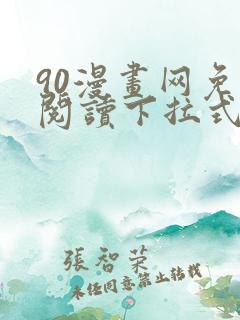 90漫畫网免
閱讀下拉式
張智荣
未经同意禁止转载